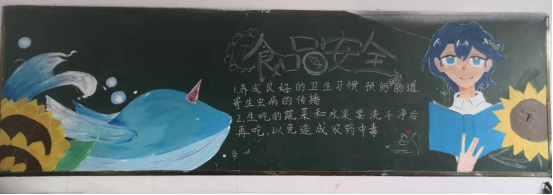 食品安全
1.养成良好的卫生习惯 预防肠道
寄生虫病的传播
2.生吃的蔬菜和水果要洗干净后
再吃,以免造成农药中毒